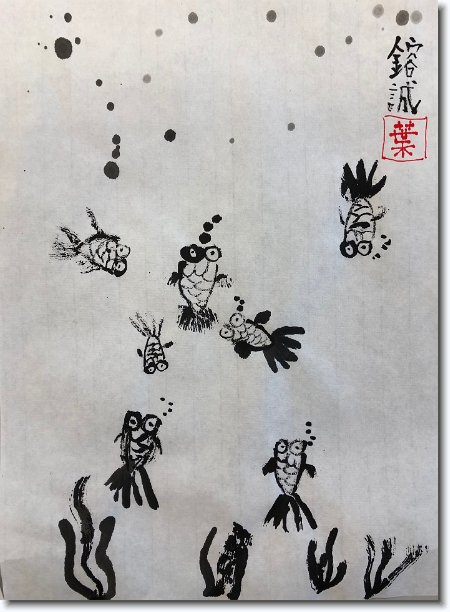 鎔誠
葉